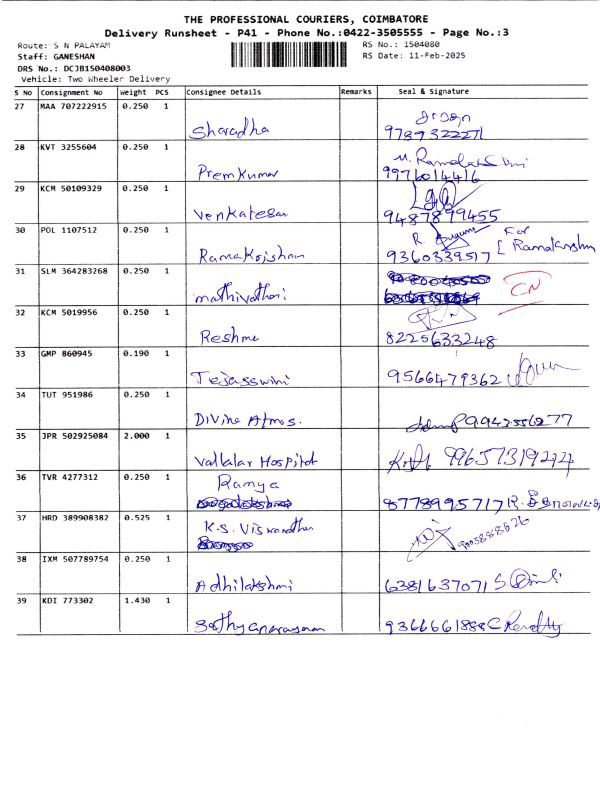 THE PROFESSIONAL COURIERS, COIMBATORE
Delivery Runsheet - P41 - Phone No.:0422-3505555 - Page No.:3
Route: S N PALAYAM
RS No.: 1504080
Staff: GANESHAN
RS Date: 11-Feb-2025
DRS No.: DCJB150408003
Vehicle: Two Wheeler Delivery
S No Consignment No Weight PCS Consignee Details Remarks Seal & Signature
27 MAA 707222915 0.250 1
Sharadha 9789322271
28 KVT 3255604 0.250 1
Premkumar 9976014416
29 KCM 50109329 0.250 1
Venkatesan 9487899455
30 POL 1107512 0.250 1
For
Ramakrishnan 9360339517 Ramakrishnan
31 SLM 364283268 0.250 1
CN
32 KCM 5019956 0.250 1
Reshma 8225633248
33 GMP 860945 0.190 1
Tejasswini 9566479362
34 TUT 951986 0.250 1
Divine Atmos. 9942556277
35 JPR 502925084 2.000 1
Vallalar Hospital
36 TVR 4277312 0.250 1
Ramya
8778995717
37 HRD 389908382 0.525 1
K.S. Viswanathan
9003888626
38 IXM 507789754 0.250 1
Adhilakshmi 6381637071
39 KDI 773302 1.430 1
Sathyanarayanan